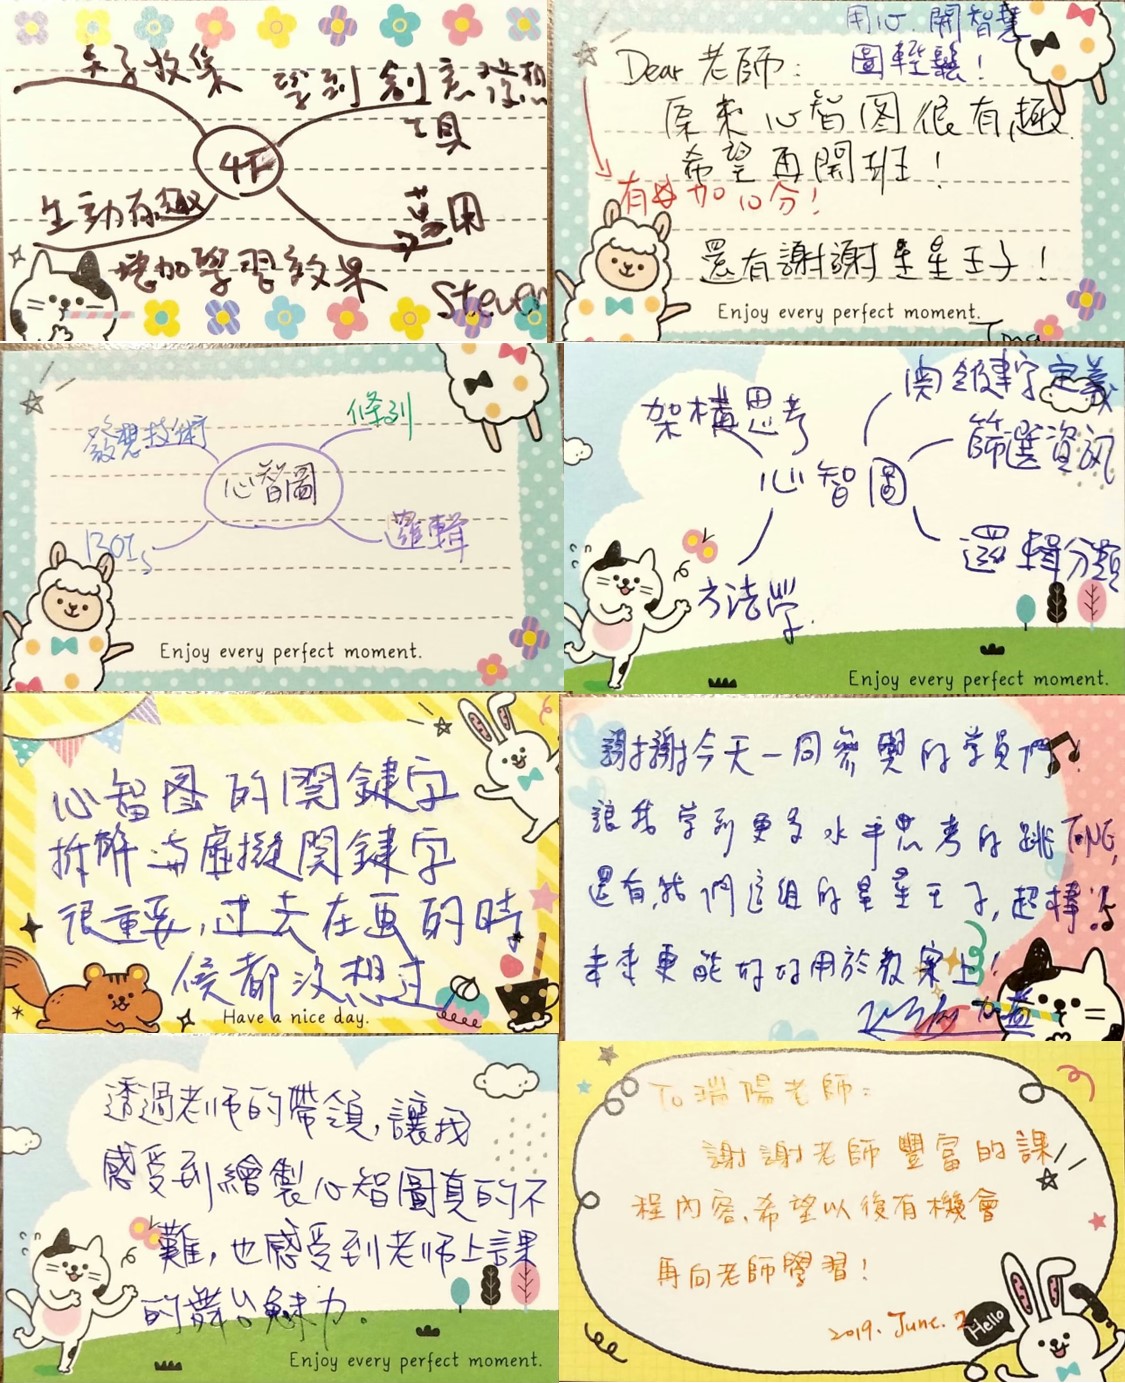 點子收集
學到創意發想
工具
4F
生動有趣
萬用
增加學習效果
Steven
用心,開智慧
圖輕鬆!
Dear 老師:
原來心智図很有趣
希望再開班!
有夢加10分!
還有謝謝星星王子!
Enjoy every perfect moment.
Tina
發想技術
條列
心智圖
BOIs
邏輯
Enjoy every perfect moment.
架構思考
関鍵字定義
篩選資訊
心智圖
邏輯分類
方法學.
Enjoy every perfect moment.
心智图的関鍵字
拆解与虛擬関鍵字
很重要,过去在画的時
候都没想过
Have a nice day.
謝謝今天一同參與的学員們!
讓我学到更多水平思考的跳TONE,
還有,我們這組的星星王子,超棒!
未來更能好好用於教案上!
透過老师的帶領,讓我
感受到繪製心智圖真的不
難,也感受到老师上課
的舞台魅力.
Enjoy every perfect moment.
To 瑞陽老師:
謝謝老師豐富的課
程內容,希望以後有機會
再向老師學習!
2019. June. 2
Hello